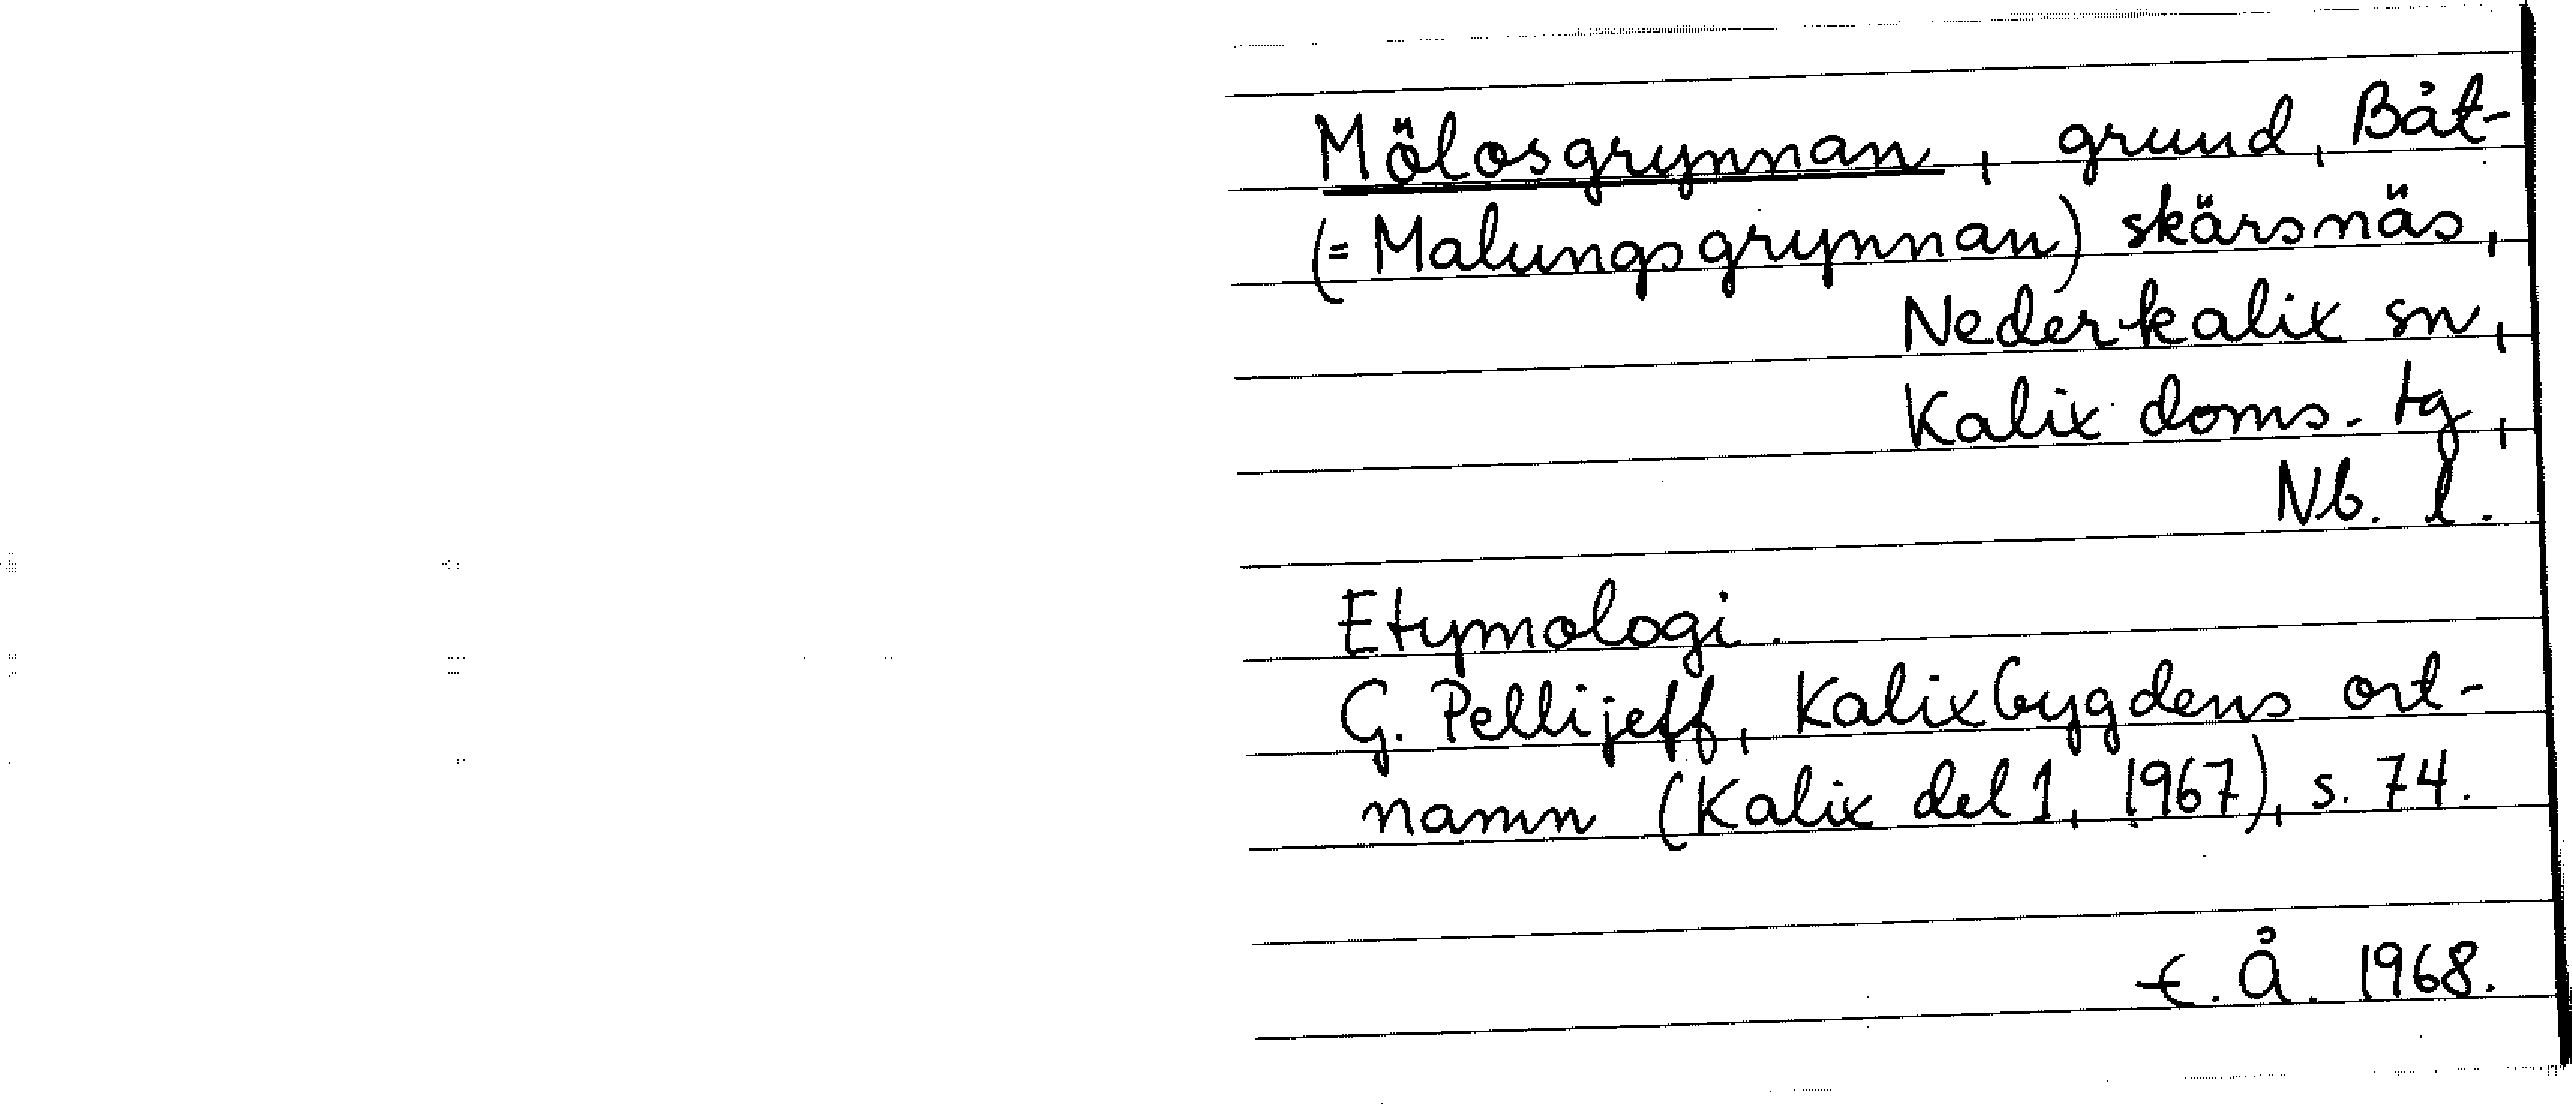 Mölosgrynnan, grund, Båt-
(= Malungsgrynnan) skärsnäs,
Nederkalix sn,
Kalix doms. tg,
Nb. l.
Etymologi.
G. Pellijeff, Kalixbygdens ort-
namn (Kalix del 1, 1967), s. 74.
E. Å. 1968.